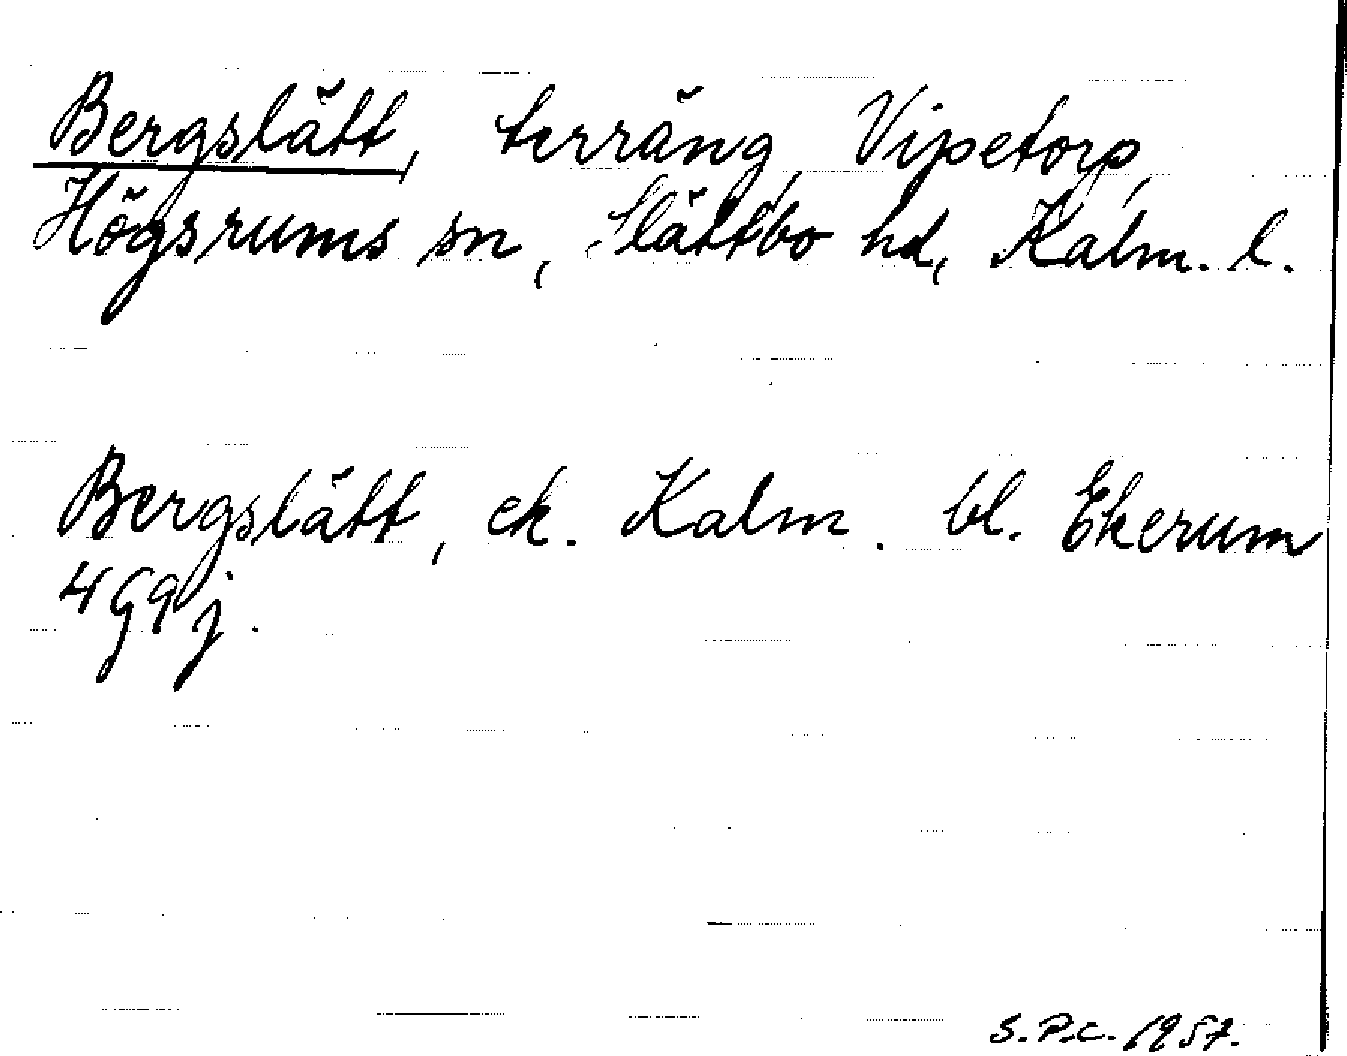 Bergslätt, terräng, Vipetorp,
Högsrums sn, Slättbo hd, Kalm. l.
Bergslätt, ek. Kalm. bl. Ekerum
4G9j.
S.P.C. 1957.